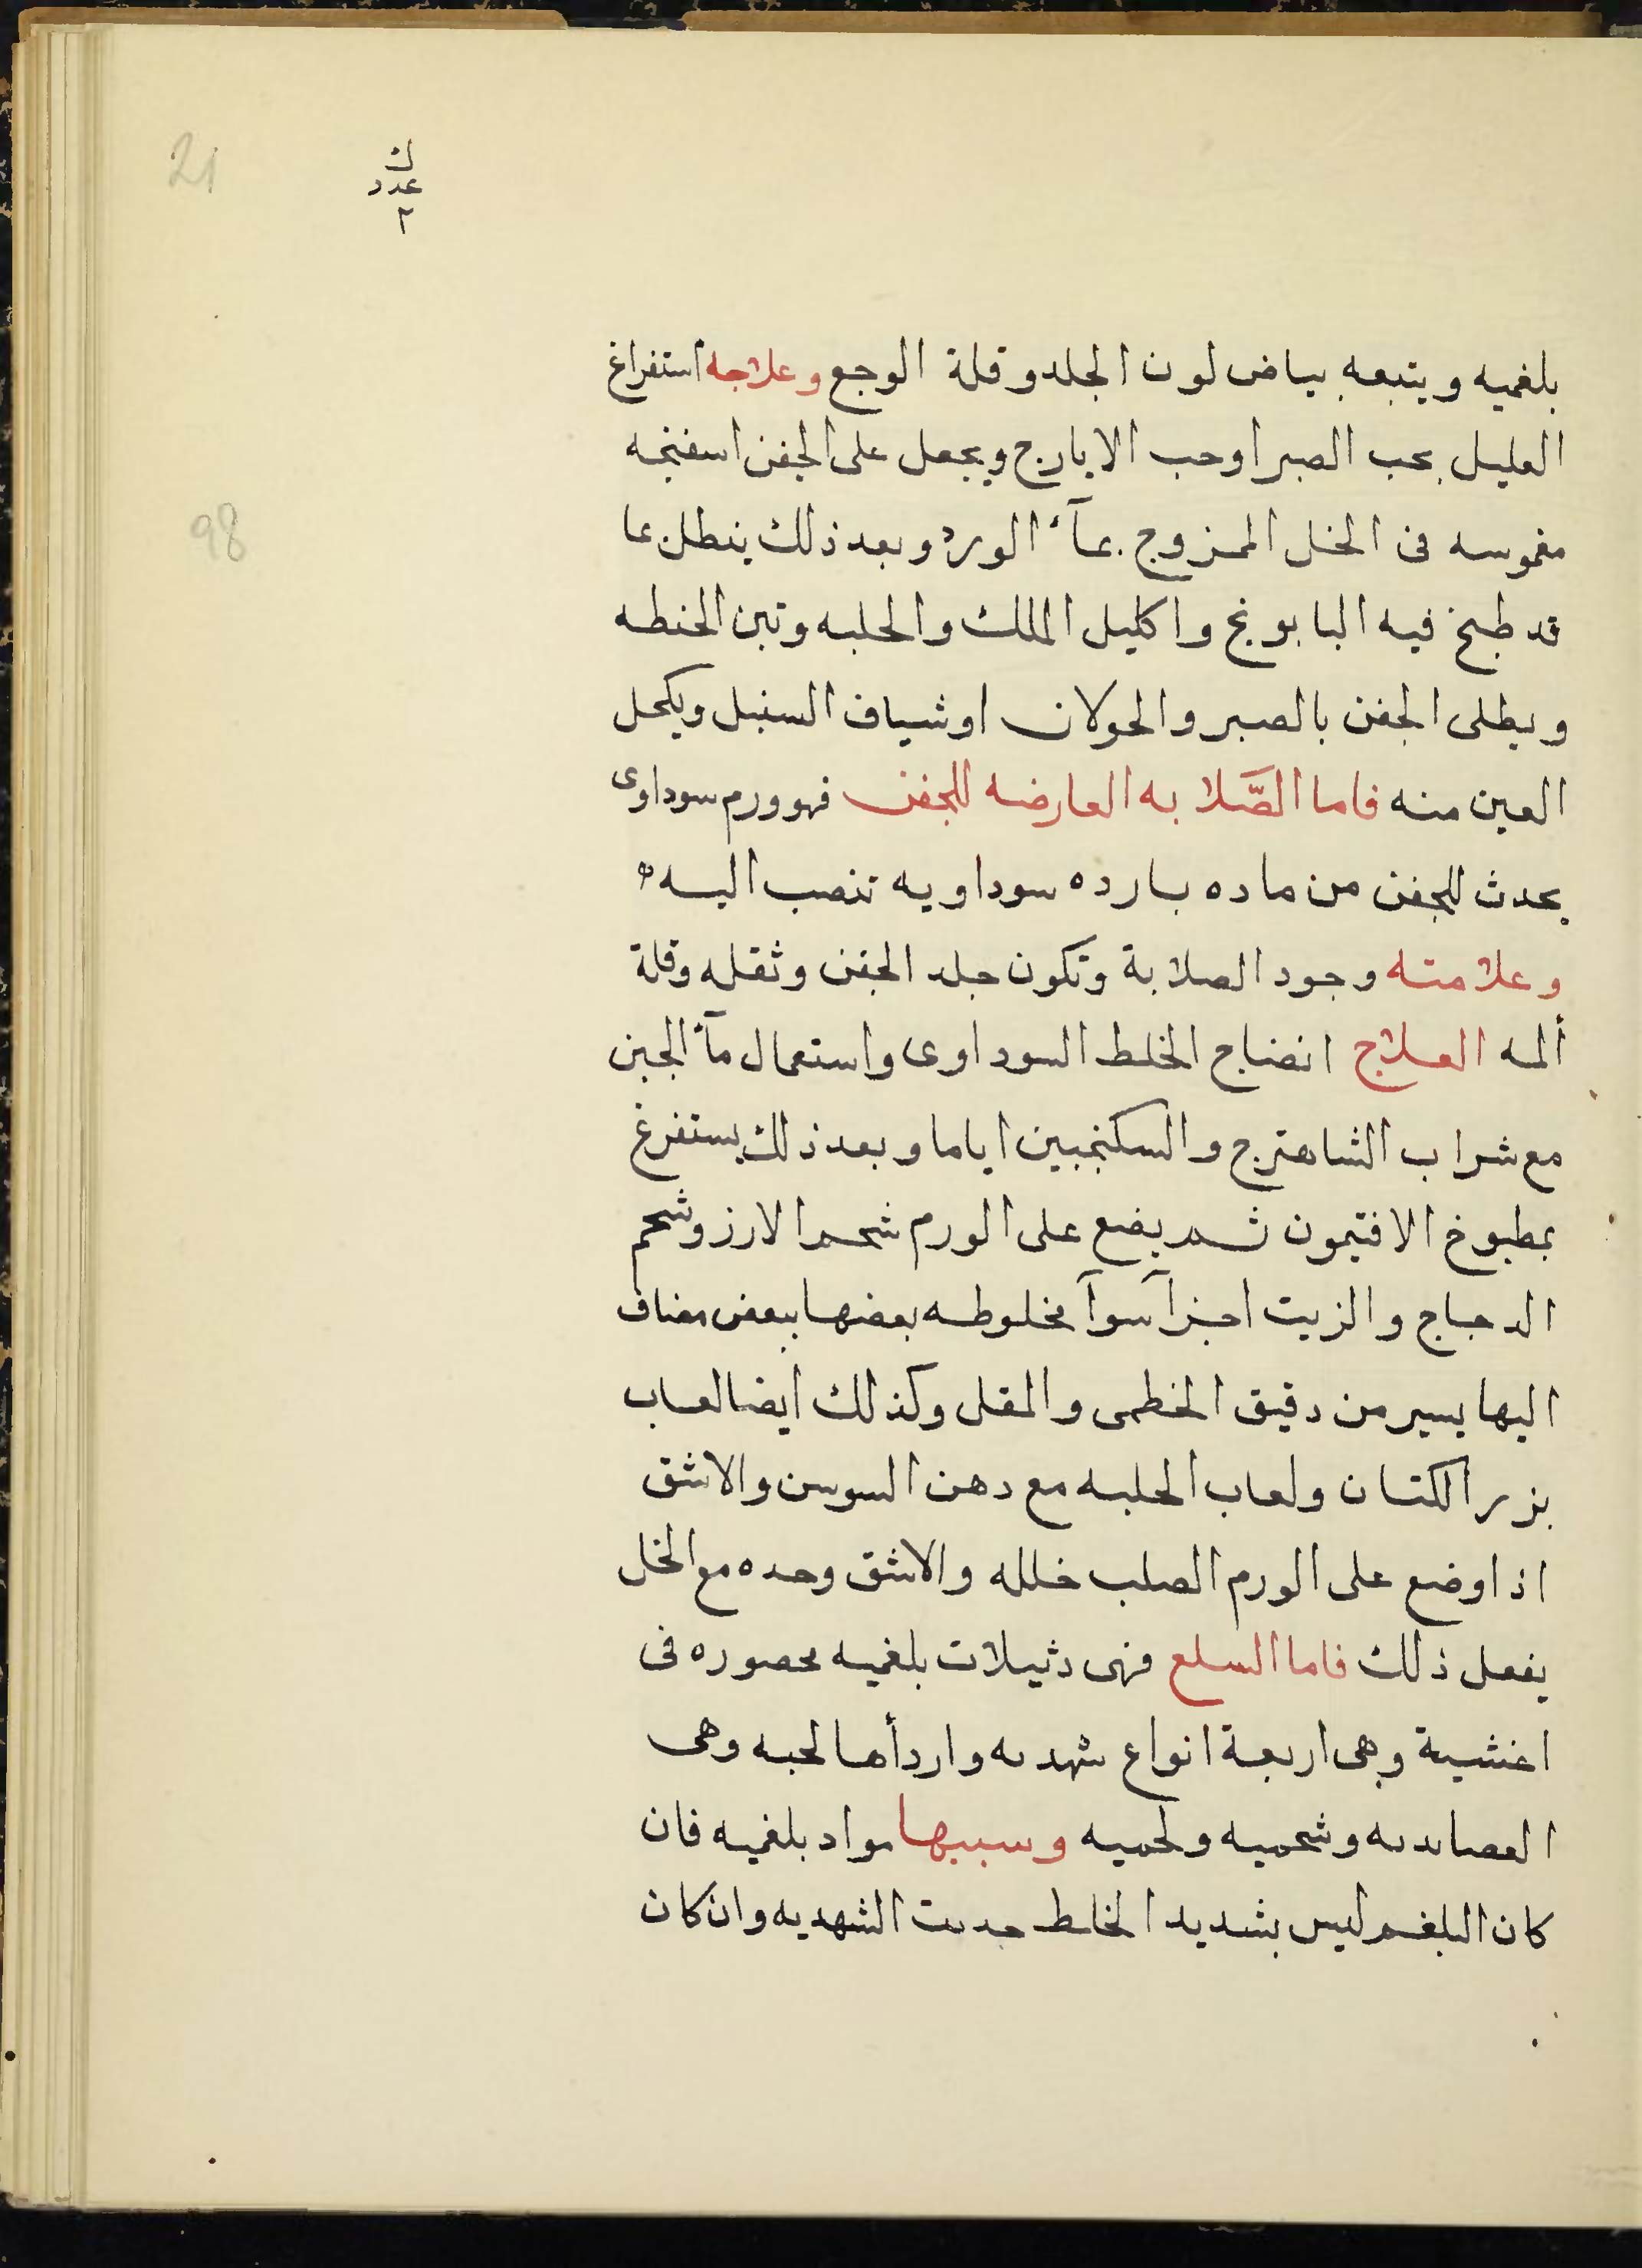 21
ك
عدد
٢
98
بلغميه ويتبعه بياض لون الجلد وقلة الوجع وعلاجه استفراغ
العليل بحب الصبر اوحب الايارج ويجعل على الجفن اسفنجه
مغموسه فى الخل الممزوج بمآء الورد وبعد ذلك ينطل بما
قد طبخ فيه البابونج واكليل الملك والحلبه وتبن الحنطه
ويطلى الجفن بالصبر والحولان اوشياف السنبل ويكحل
العين منه فاما الصَّلابه العارضه للجفن فهو ورم سوداوى
يحدث للجفن من ماده بارده سوداويه تنصب اليه
وعلامته وجود الصلابة وتكون جلد الجفن وثقله وقلة
ألمه العلاج انضاج الخلط السوداوى واستعمال مآء الجبن
مع شراب الشاهترج والسكنجبين اياما وبعد ذلك يستفرغ
بمطبوخ الافتيمون ثم يضع على الورم شحم الارز وشحم
الدجاج والزيت اجزآ سوآ مخلوطه بعضها ببعض مضاف
اليها يسير من دقيق الخطمى والمقل وكذلك ايضا لعاب
بزر الكتان ولعاب الحلبه مع دهن السوسن والاشق
اذا وضع على الورم الصلب خلله والاشق وحده مع الخل
يفعل ذلك فاما السلع فهى دثيلات بلغميه محصوره فى
اغشية وهى اربعة انواع شهديه واردأها لحبه وهى
العصائديه وشحميه ولحميه وسببها مواد بلغميه فان
كان البلغم ليس بشديد الخلط حدثت الشهديه وان كان